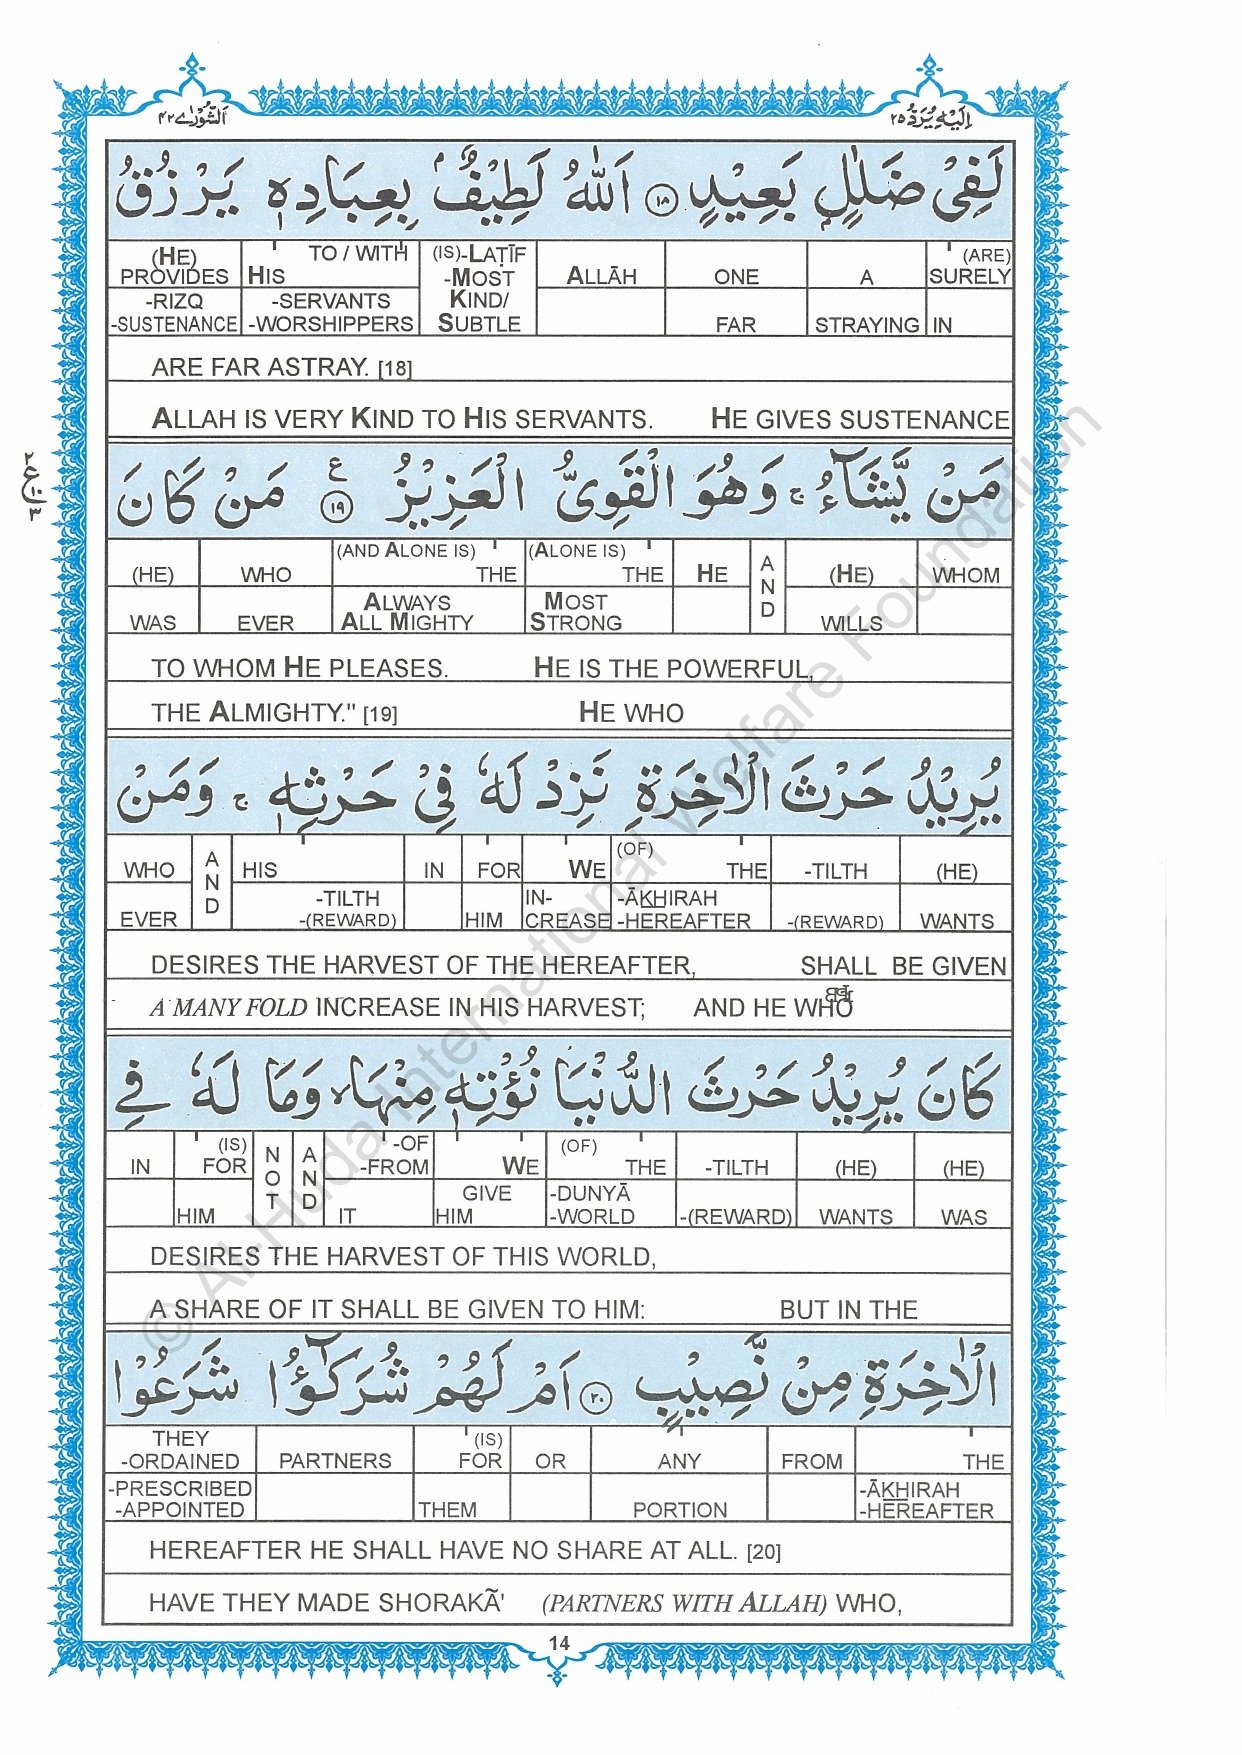 اَلشُّوْرٰے ٤٢
اِلَيْهِ يُرَدُّ ٢٥
لَفِيْ ضَلٰلٍۭ بَعِيْدٍ ١٨ اَللّٰهُ لَطِيْفٌۢ بِعِبَادِهٖ يَرْزُقُ
(HE) PROVIDES | HIS TO / WITH | (IS)-LAṬĪF -MOST | ALLĀH | ONE | A | (ARE) SURELY
-RIZQ -SUSTENANCE | -SERVANTS -WORSHIPPERS | KIND/ SUBTLE | FAR | STRAYING | IN
ARE FAR ASTRAY. [18]
ALLAH IS VERY KIND TO HIS SERVANTS. HE GIVES SUSTENANCE
مَنْ يَّشَآءُ ۚ وَهُوَ الْقَوِيُّ الْعَزِيْزُ ١٩ ع مَنْ كَانَ
٢
ع
١٠
٣
(HE) | WHO | (AND ALONE IS) THE | (ALONE IS) THE | HE | AND | (HE) | WHOM
WAS | EVER | ALWAYS ALL MIGHTY | MOST STRONG | WILLS
TO WHOM HE PLEASES. HE IS THE POWERFUL,
THE ALMIGHTY." [19] HE WHO
يُرِيْدُ حَرْثَ الْاٰخِرَةِ نَزِدْ لَهٗ فِيْ حَرْثِهٖ ۚ وَمَنْ
WHO | AND | HIS | IN | FOR | WE | (OF) THE | -TILTH | (HE)
EVER | -TILTH -(REWARD) | HIM | IN- CREASE | -ĀKHIRAH -HEREAFTER | -(REWARD) | WANTS
DESIRES THE HARVEST OF THE HEREAFTER, SHALL BE GIVEN
A MANY FOLD INCREASE IN HIS HARVEST; AND HE WHO
كَانَ يُرِيْدُ حَرْثَ الدُّنْيَا نُؤْتِهٖ مِنْهَا وَمَا لَهٗ فِي
IN | (IS) FOR | NOT | AND | -OF -FROM | WE | (OF) THE | -TILTH | (HE) | (HE)
HIM | IT | GIVE HIM | -DUNYĀ -WORLD | -(REWARD) | WANTS | WAS
DESIRES THE HARVEST OF THIS WORLD,
A SHARE OF IT SHALL BE GIVEN TO HIM: BUT IN THE
الْاٰخِرَةِ مِنْ نَّصِيْبٍ ٢٠ اَمْ لَهُمْ شُرَكٰٓؤُا شَرَعُوْا
THEY -ORDAINED | PARTNERS | (IS) FOR | OR | ANY | FROM | THE
-PRESCRIBED -APPOINTED | THEM | PORTION | -ĀKHIRAH -HEREAFTER
HEREAFTER HE SHALL HAVE NO SHARE AT ALL. [20]
HAVE THEY MADE SHORAKÃ' (PARTNERS WITH ALLAH) WHO,
14
© Al-Huda International Welfare Foundation